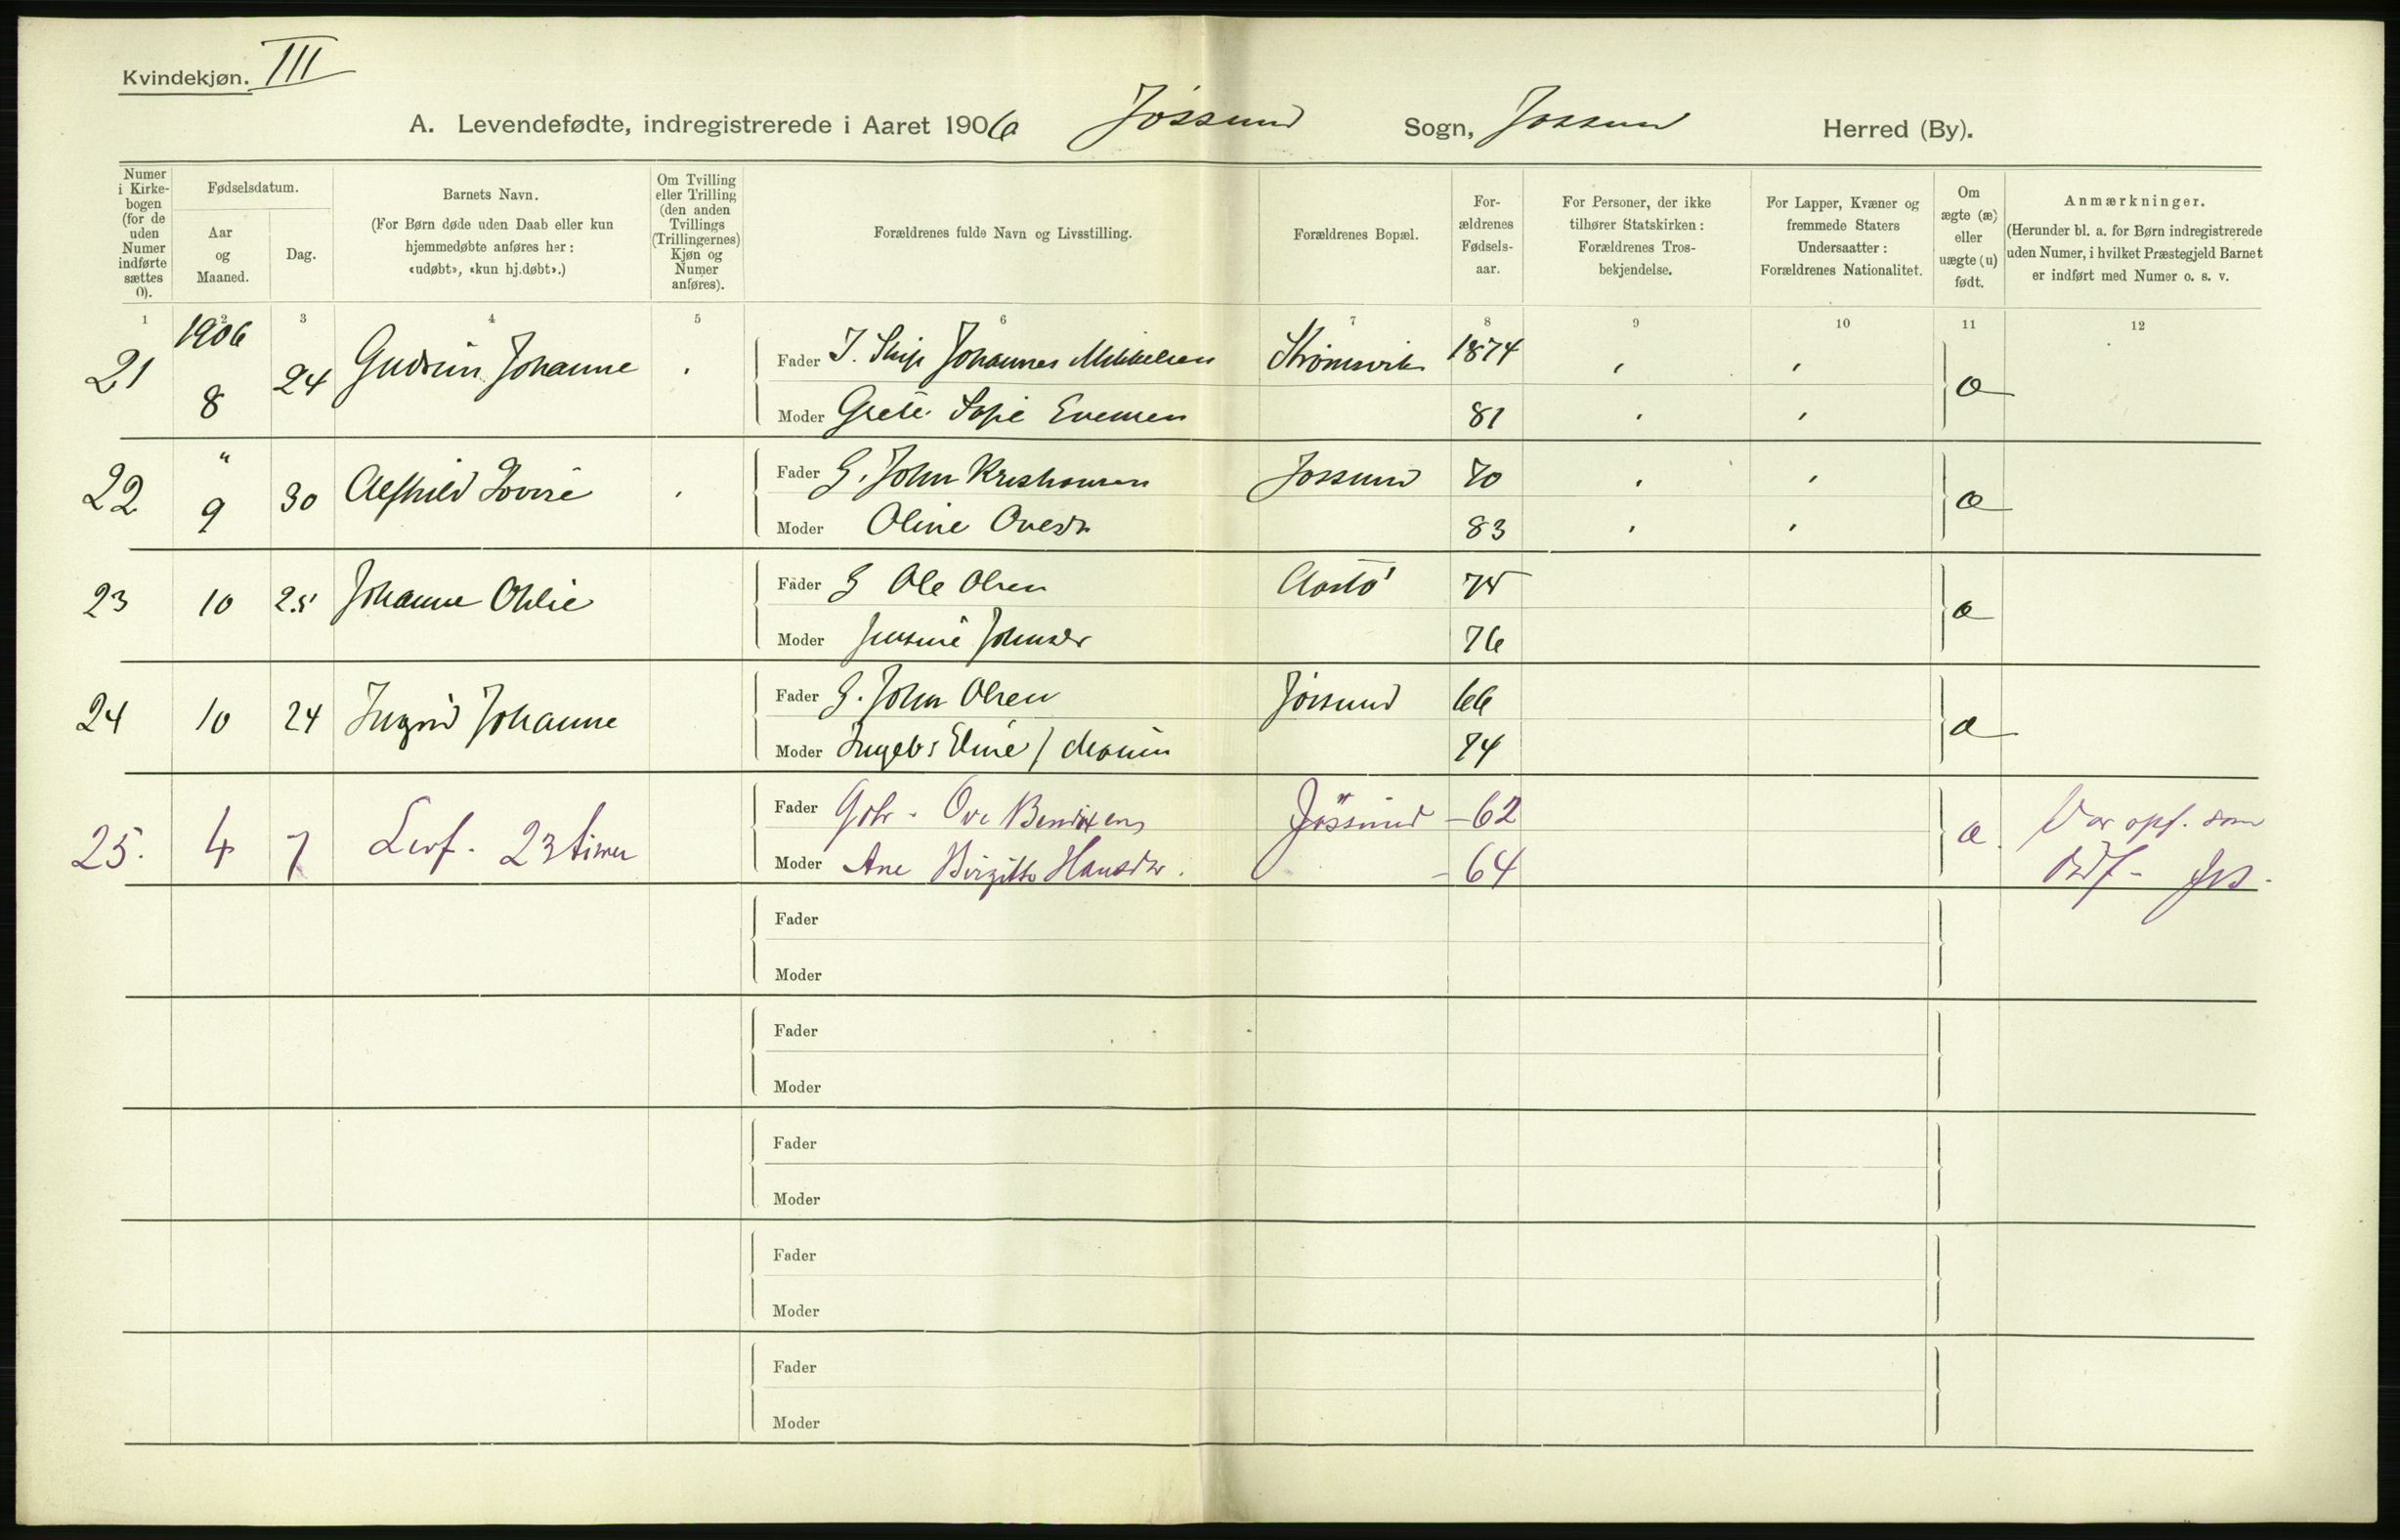 Kvindekjøn. III
A. Levendefødte, indregistrerede i Aaret 1906 Jøssund Sogn, Jøssund Herred (By).
Numer i Kirkebogen (for de uden Numer indførte sættes 0).
Fødselsdatum.
Aar og Maaned.
Dag.
Barnets Navn.
(For Børn døde uden Daab eller kun hjemmedøbte anføres her: «udøbt», «kun hj.døbt».)
Om Tvilling eller Trilling (den anden Tvillings (Trillingernes) Kjøn og Numer anføres).
Forældrenes fulde Navn og Livsstilling.
Forældrenes Bopæl.
Forældrenes Fødselsaar.
For Personer, der ikke tilhører Statskirken: Forældrenes Trosbekjendelse.
For Lapper, Kvæner og fremmede Staters Undersaatter: Forældrenes Nationalitet.
Om ægte (æ) eller uægte (u) født.
Anmærkninger.
(Herunder bl. a. for Børn indregistrerede uden Numer, i hvilket Præstegjeld Barnet er indført med Numer o. s. v.
1 2 3 4 5 6 7 8 9 10 11 12
21 1906 8 24 Gudrun Johanne Fader Johannes Mikkelsen Strømsvik 1874 æ
Moder Grete Sofie Evensen 81
22 " 9 30 Alfhild Fader G. John Kristiansen Jøssund 70 æ
Moder Oline Ovedr 83
23 10 25 Johanne Fader G Ole Olsen 75 æ
Moder Johnsdr 76
24 10 24 Ingrid Johanne Fader G. John Olsen Jøssund 66 æ
Moder Ingebr Eline 74
25. 4 7 Levf. 23 timer Fader Gbr. Ove Bendixen Jøssund -62 æ Var opf. som
Moder Ane Birgitte Hansdr. -64 dødf.
Fader
Moder
Fader
Moder
Fader
Moder
Fader
Moder
Fader
Moder